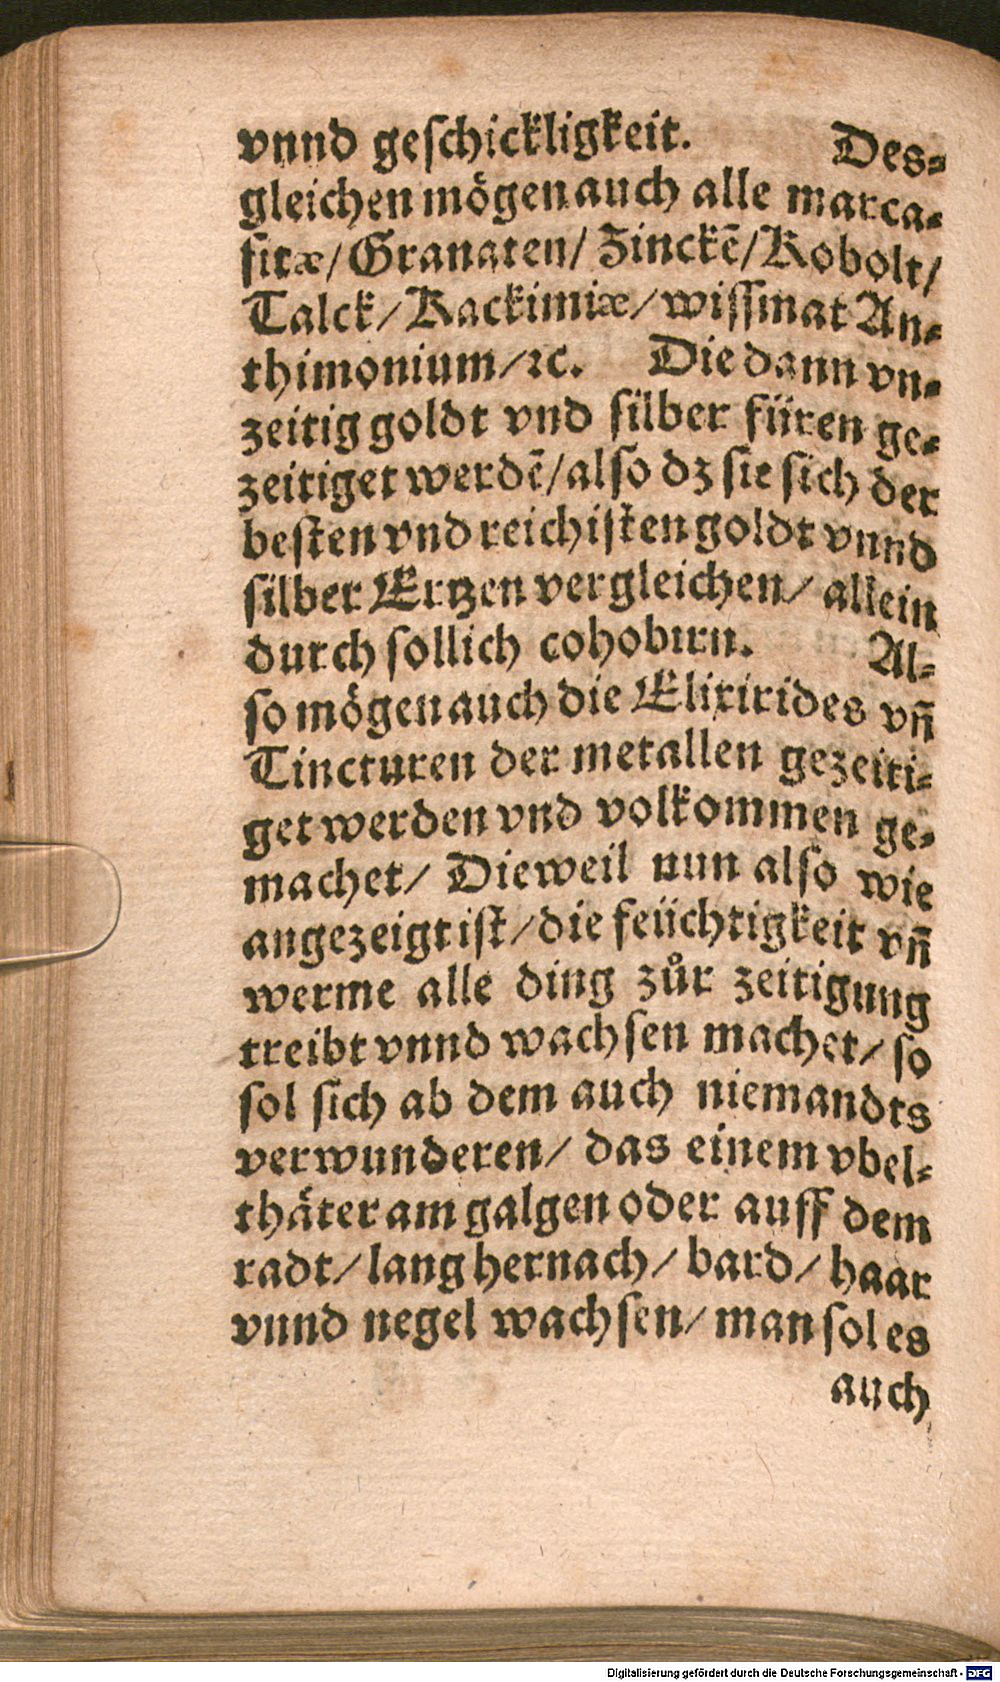 vnnd geſchickligkeit. Des-
gleichen mögen auch alle marca-
ſitæ/ Granaten/ Zinckẽ/ Kobolt/
Talck/ Kackimiæ/ wiſſmat An-
thimonium/ ꝛc. Die dann vn-
zeitig goldt vnd ſilber füren ge-
zeitiget werdẽ/ alſo dz ſie ſich der
beſten vnd reichiſten goldt vnnd
ſilber Ertzen vergleichen/ allein
durch ſollich cohobirn. Al-
ſo mögen auch die Elixirides vñ
Tincturen der metallen gezeiti-
get werden vnd volkommen ge-
machet/ Dieweil nun alſo wie
angezeigt iſt/ die feüchtigkeit vñ
werme alle ding zůr zeitigung
treibt vnnd wachſen machet/ ſo
ſol ſich ab dem auch niemandts
verwunderen/ das einem vbel-
thäter am galgen oder auff dem
radt/ lang hernach/ bard/ haar
vnnd negel wachſen/ man ſol es
auch
Digitalisierung gefördert durch die Deutsche Forschungsgemeinschaft - DFG